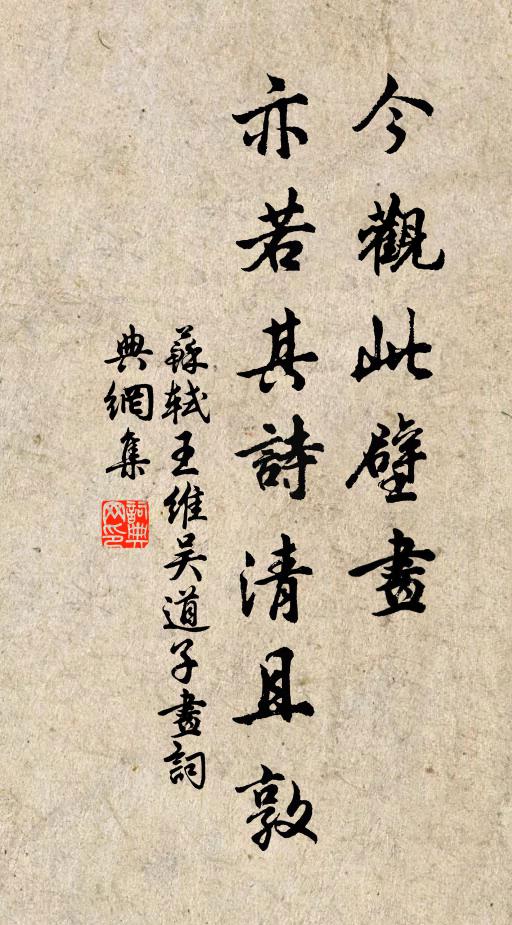 今觀此壁畫
亦若其詩清且敦
蘇軾王維吳道子畫詞
典網集
詞典網印